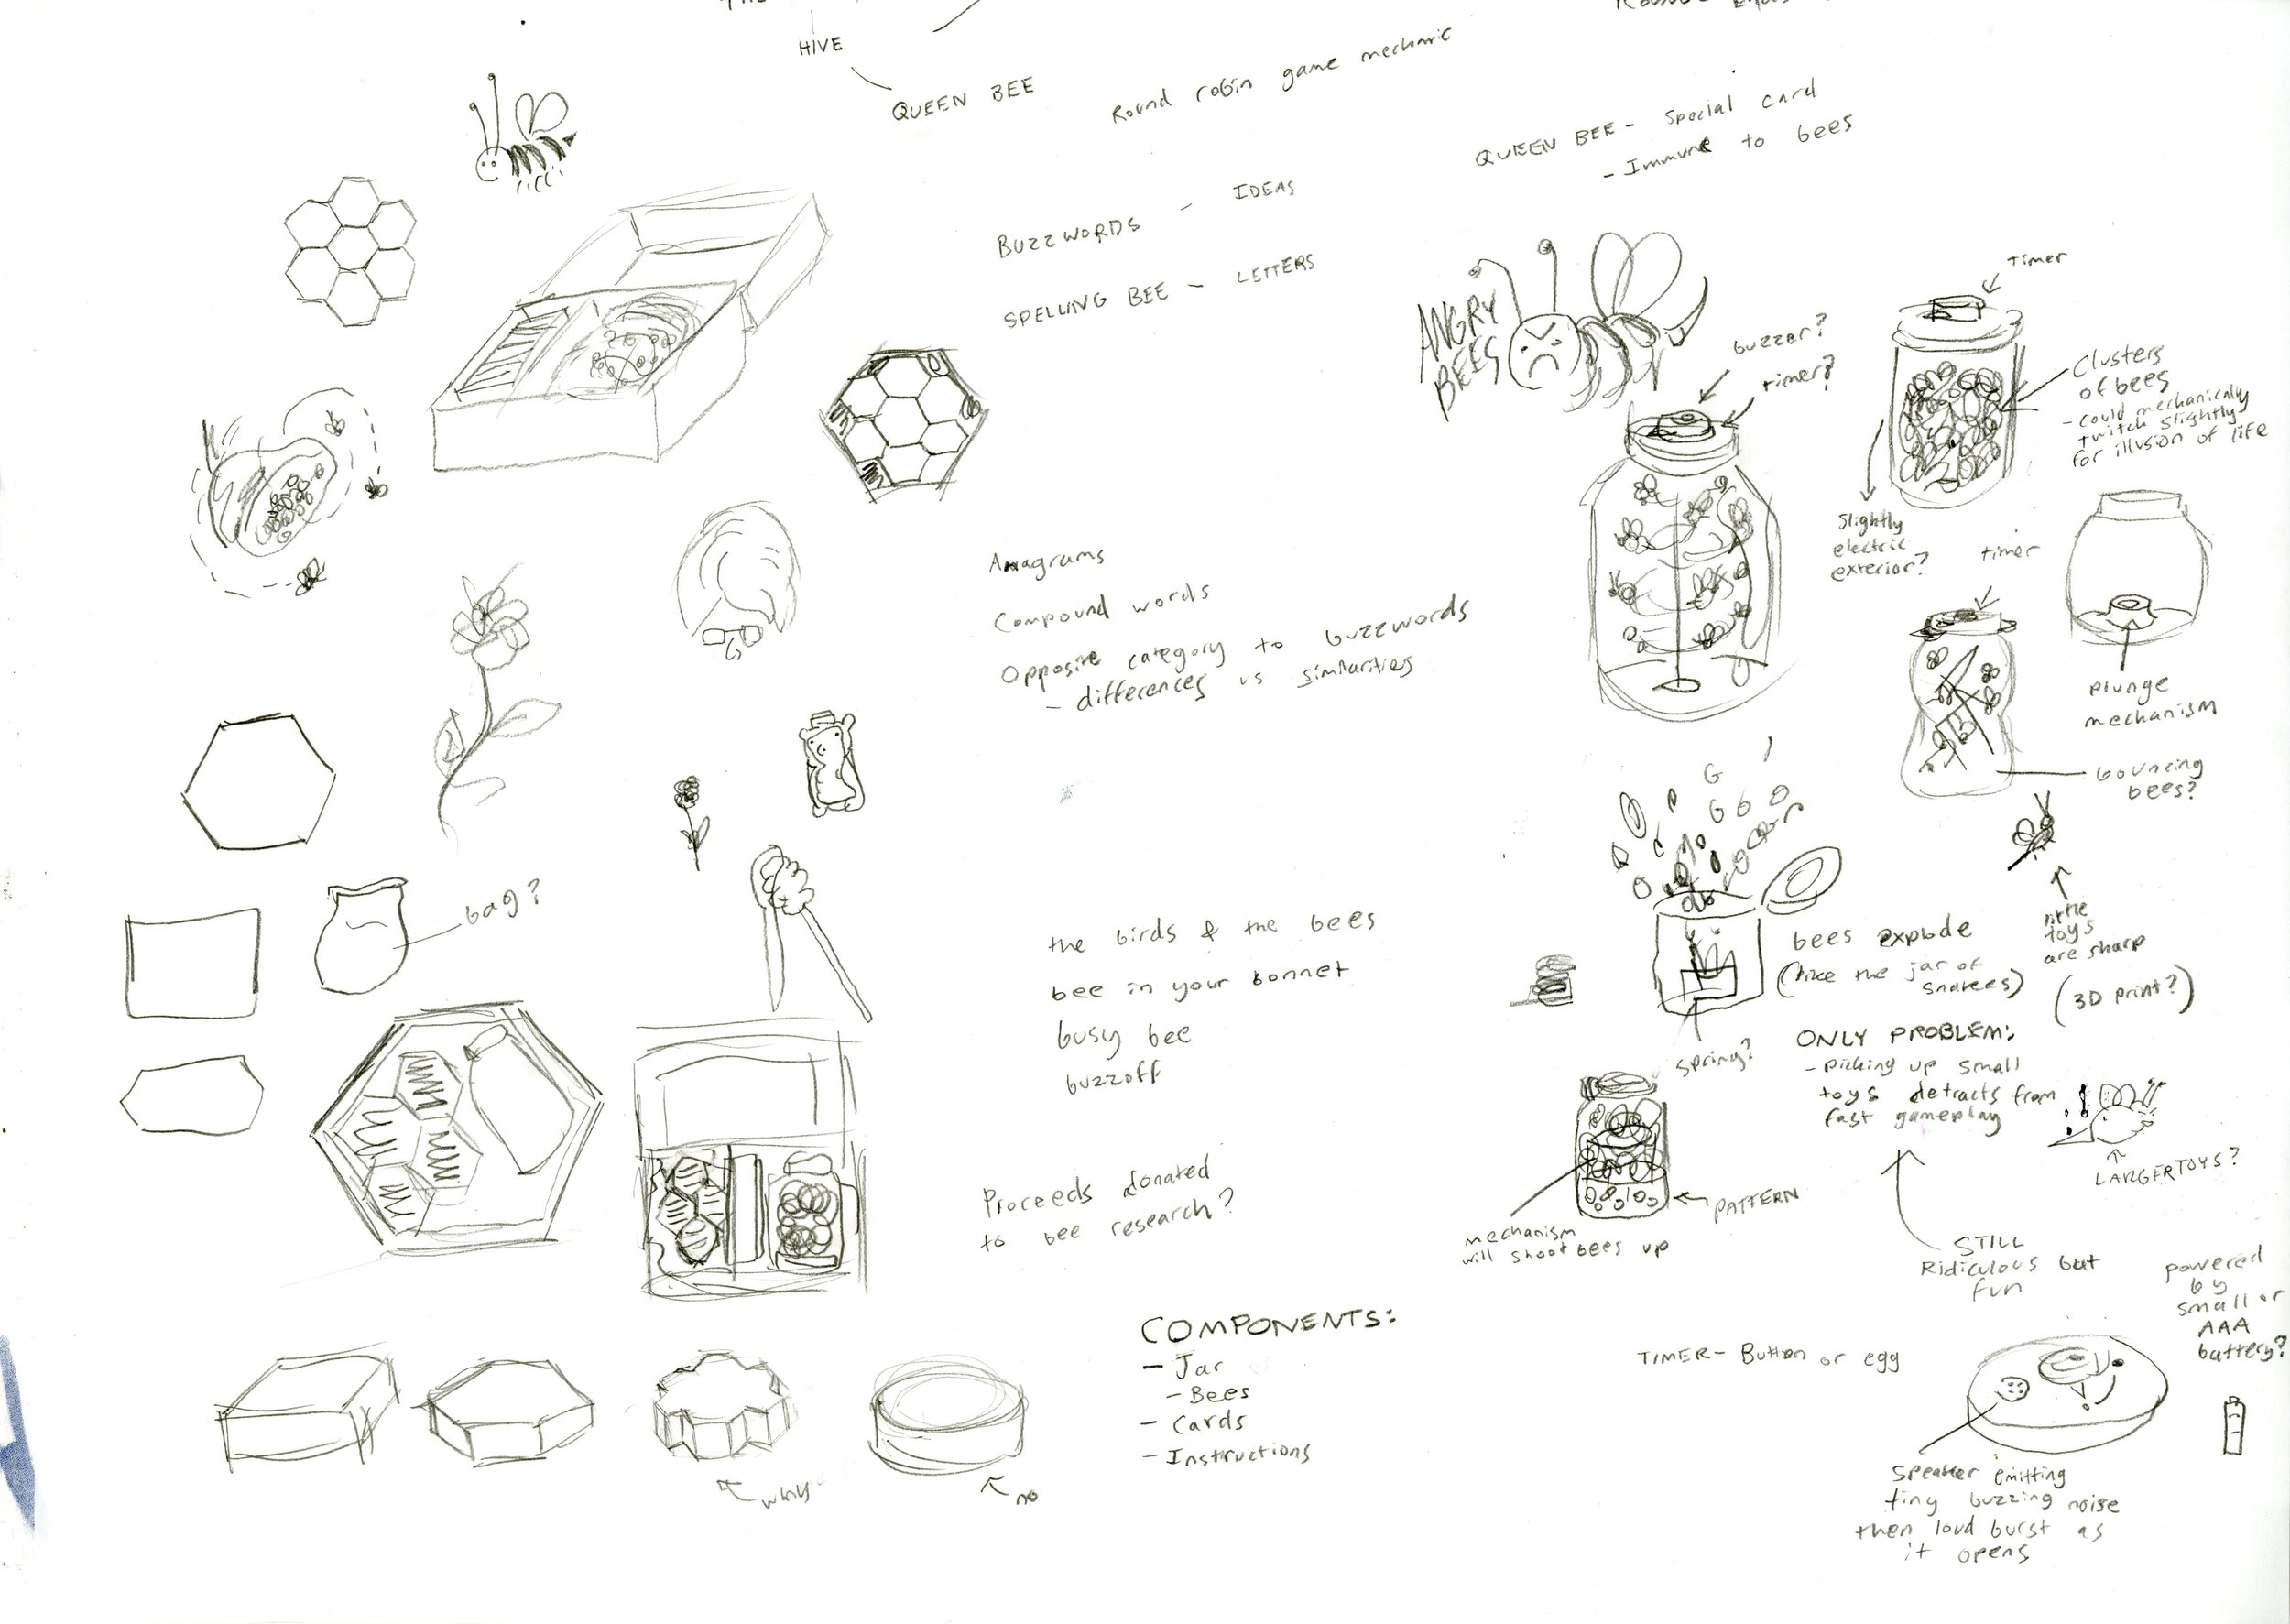 HIVE
QUEEN BEE
Round robin game mechanic
QUEEN BEE - Special card
- Immune to bees
BUZZWORDS - IDEAS
SPELLING BEE - LETTERS
ANGRY
BEES
buzzer?
timer?
Timer
Clusters
of bees
- could mechanically
twitch slightly
for illusion of life
Slightly
electric
exterior?
timer
plunge
mechanism
bouncing
bees?
Anagrams
Compound words
Opposite category to buzzwords
- differences vs similarities
bag?
the birds & the bees
bee in your bonnet
busy bee
buzzoff
bees explode
(like the jar of
snakes)
Spring?
little
toys
are sharp
(3D print?)
ONLY PROBLEM:
- Picking up small
toys detracts from
fast gameplay
LARGER TOYS?
STILL
Ridiculous but
fun
PATTERN
mechanism
will shoot bees up
Proceeds donated
to bee research?
COMPONENTS:
- Jar
- Bees
- Cards
- Instructions
why
no
TIMER - Button or egg
powered
by
small or
AAA
battery?
Speaker emitting
tiny buzzing noise
then loud burst as
it opens